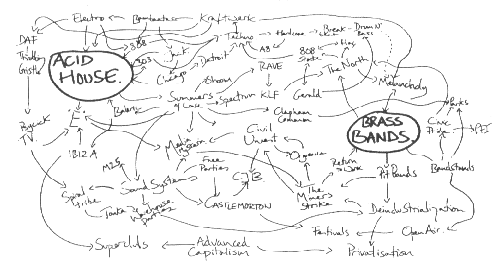 Electro
Kraftwerk
DAF
Throbbing
Gristle
ACID
HOUSE.
808
303
Chicago
Detroit
Techno
Hardcore
Break
Drum N'
Bass
A8
808
State
RAVE
The North
Melancholy
Summer
of Love
Spectrum
KLF
Gerald
Clapham
Common
Psychick
TV
E
Balearic
IBIZA
M25
Media
Civil
Unrest
BRASS
BANDS.
Civic
Pride
Parks
PFI
Free
Parties
Orgreave
Return
to Work
Pit Bands
Bandstands
Spiral
Tribe
Sound Systems
Tonka
Warehouse
Parties
CJB
CASTLEMORTON
The
Miners
Strike
Deindustrialization
Festivals
Open Air.
Superclubs
Advanced
Capitalism
Privatisation